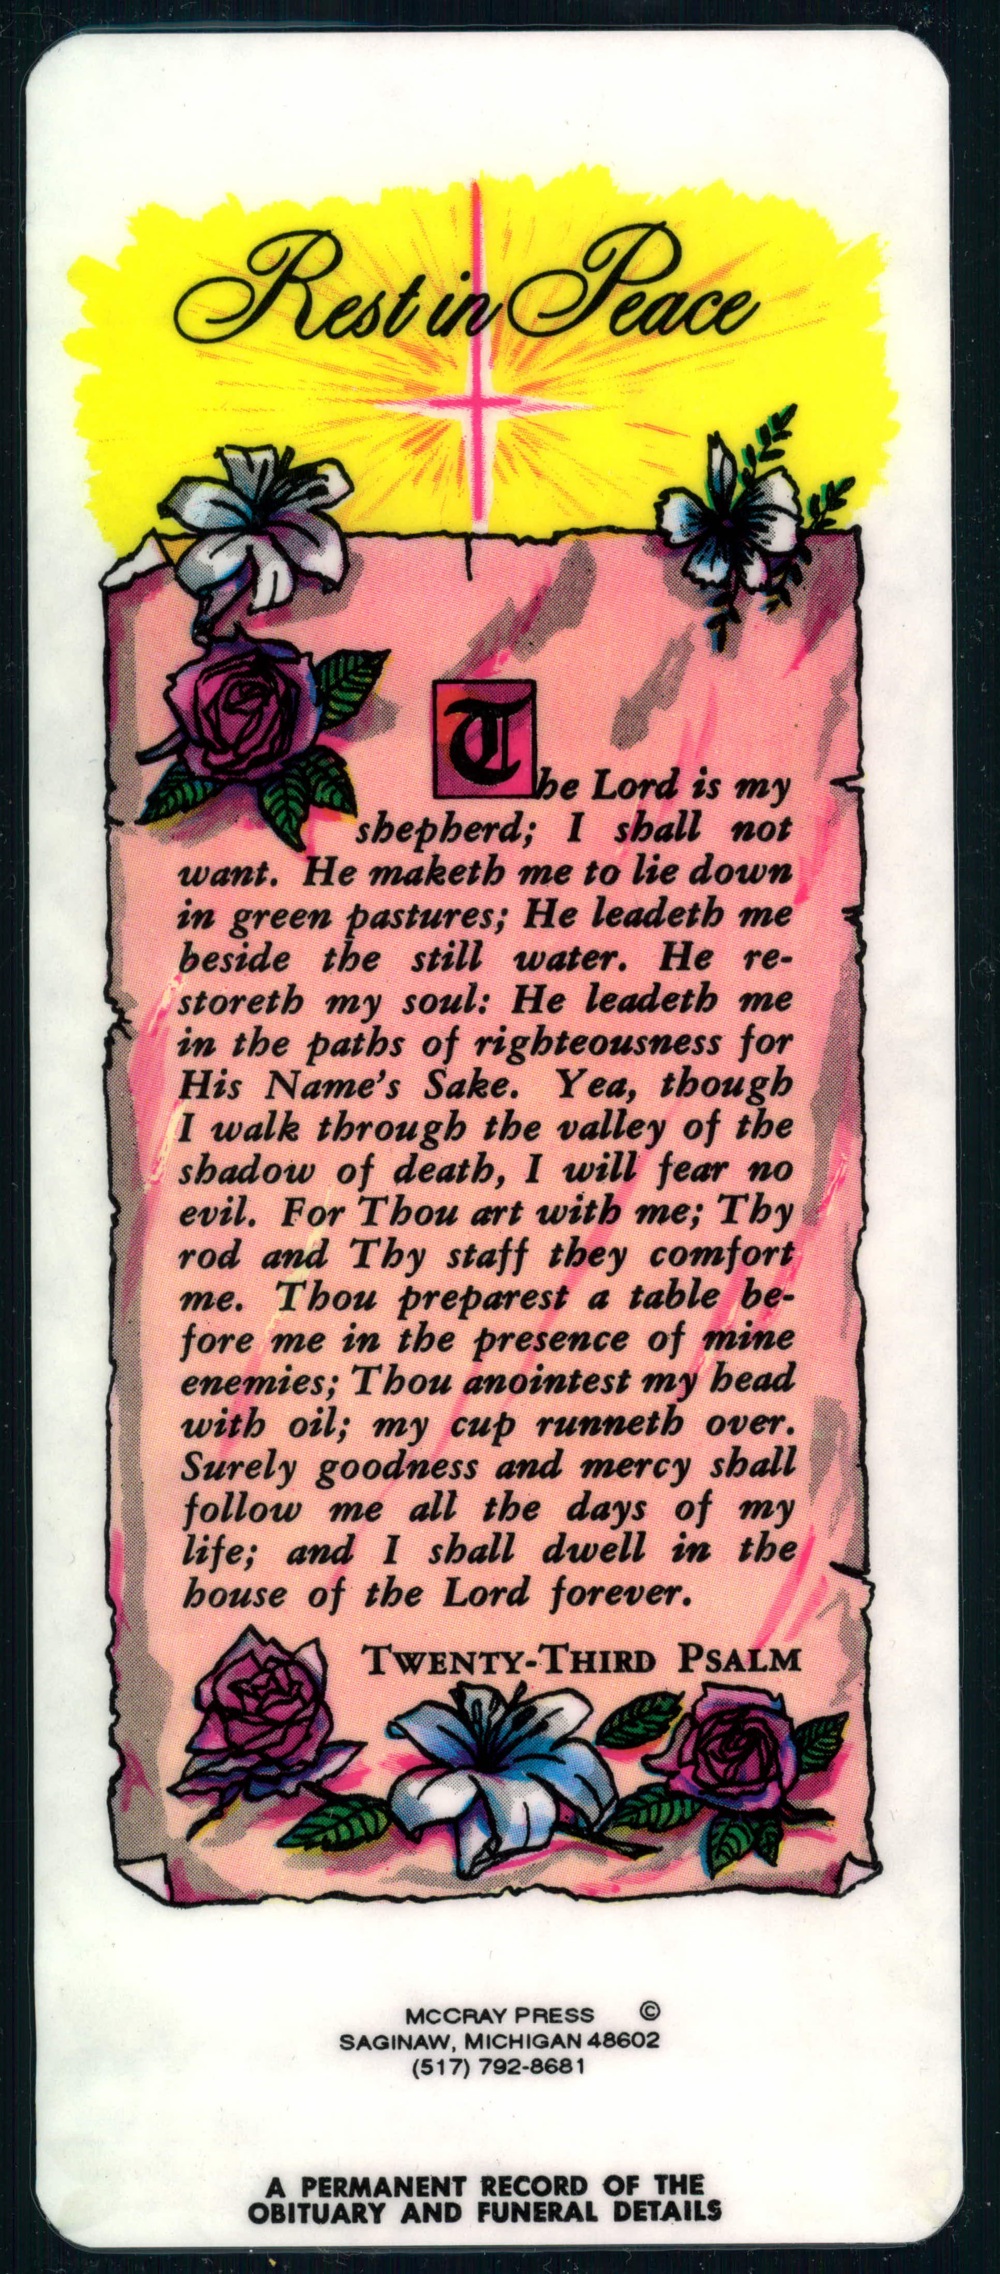 Rest in Peace
The Lord is my
shepherd; I shall not
want. He maketh me to lie down
in green pastures; He leadeth me
beside the still water. He re-
storeth my soul: He leadeth me
in the paths of righteousness for
His Name's Sake. Yea, though
I walk through the valley of the
shadow of death, I will fear no
evil. For Thou art with me; Thy
rod and Thy staff they comfort
me. Thou preparest a table be-
fore me in the presence of mine
enemies; Thou anointest my head
with oil; my cup runneth over.
Surely goodness and mercy shall
follow me all the days of my
life; and I shall dwell in the
house of the Lord forever.
TWENTY-THIRD PSALM
MCCRAY PRESS ©
SAGINAW, MICHIGAN 48602
(517) 792-8681
A PERMANENT RECORD OF THE
OBITUARY AND FUNERAL DETAILS